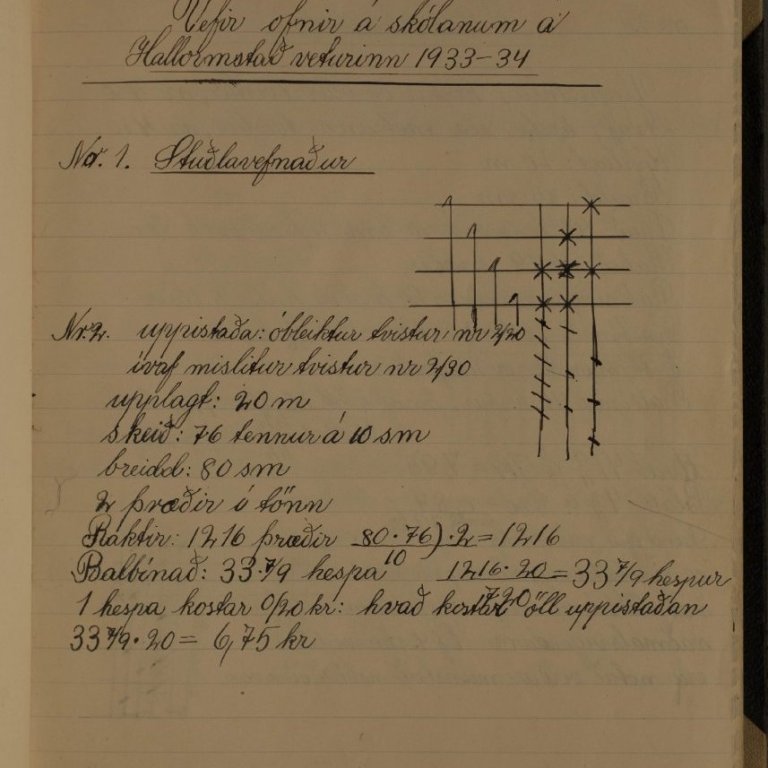 Vefir ofnir á skólanum á
Hallormstað veturinn 1933-34
No. 1. Stuðlavefnaður
Nr. 2. uppistaða: óbleiktur tvistur nr 2/20
ívaf mislitur tvistur nr 2/30
upplagt: 20 m
skeið: 76 tennur á 10 sm
breidd: 80 sm
2 þræðir í tönn
Raktir: 1216 þræðir 80·76)·2 = 1216
10
Balbínað: 33 7/9 hespa 1216·20 = 33 7/9 hespur
720
1 hespa kostar 0/20 kr: hvað kostar öll uppistaðan
33 7/9·20 = 6,75 kr